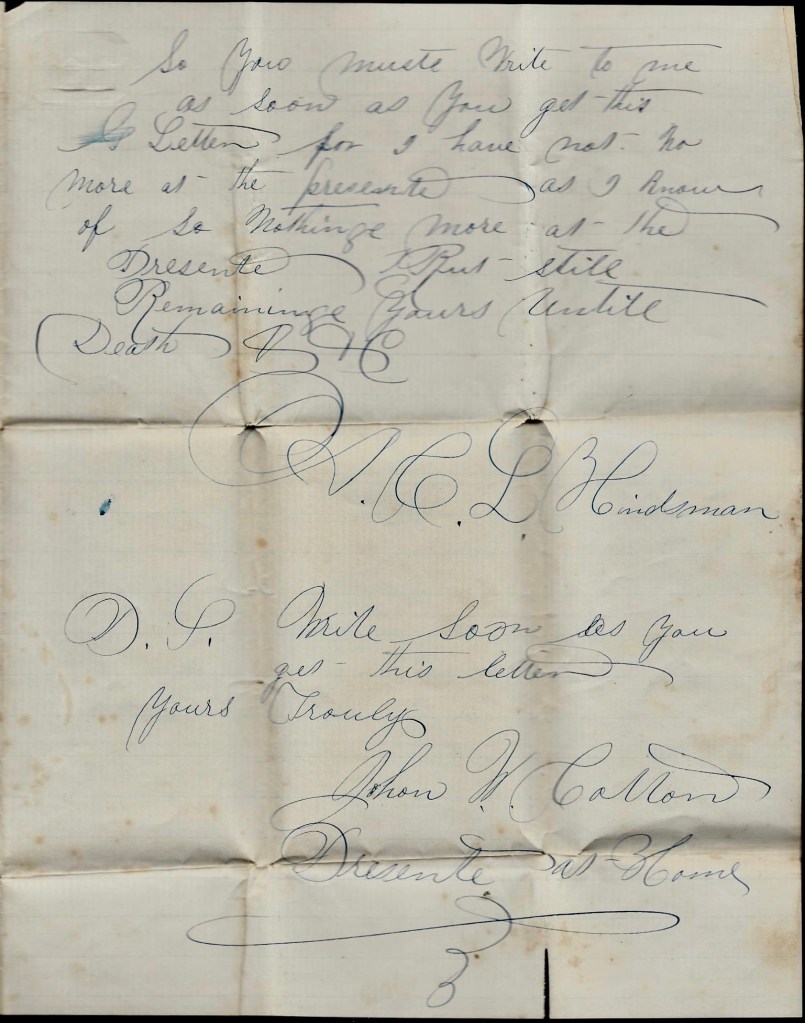 So You muste Write to me
as soon as You get this
Letter for I have not no
more at the presente as I know
of so Nothinge more at the
Presente But still
Remaininge Yours Untill
Death
A. C. L. Hindsman
P. S. Write soon as You
get this letter
Yours Trouly
Johon W. Cotton
Presente at Home
3